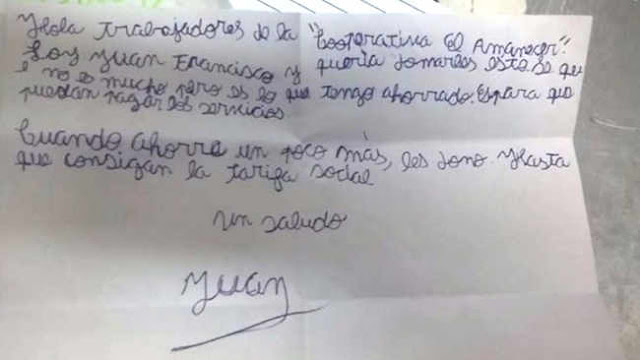 Hola trabajadores de la "Cooperativa El Amanecer".
Soy Juan Francisco y quería donarles esto se que
no es mucho pero es lo que tengo ahorrado. Es para que
puedan pagar los servicios
Cuando ahorre un poco más, les dono. Hasta
que consigan la tarifa social
un saludo
Juan